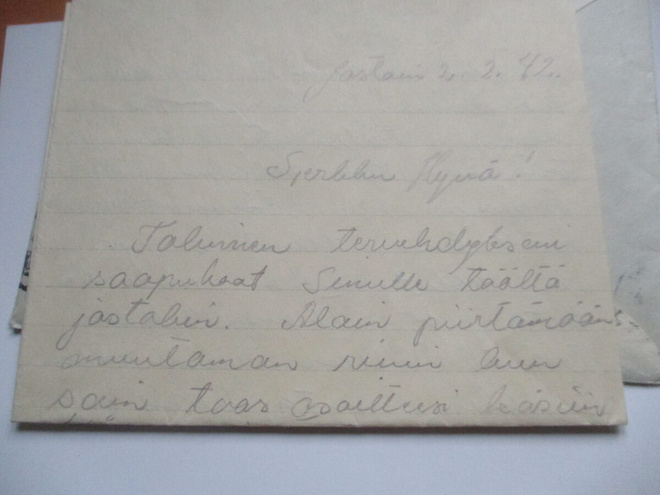 Jostain 2. 2. 42.
Serkku Hyvä!
Talvinen tervehdykseni
saapukoot Sinulle täältä
jostakin. Alain piirtämään
muutaman rivin kun
sain taas osoitteesi käsiin